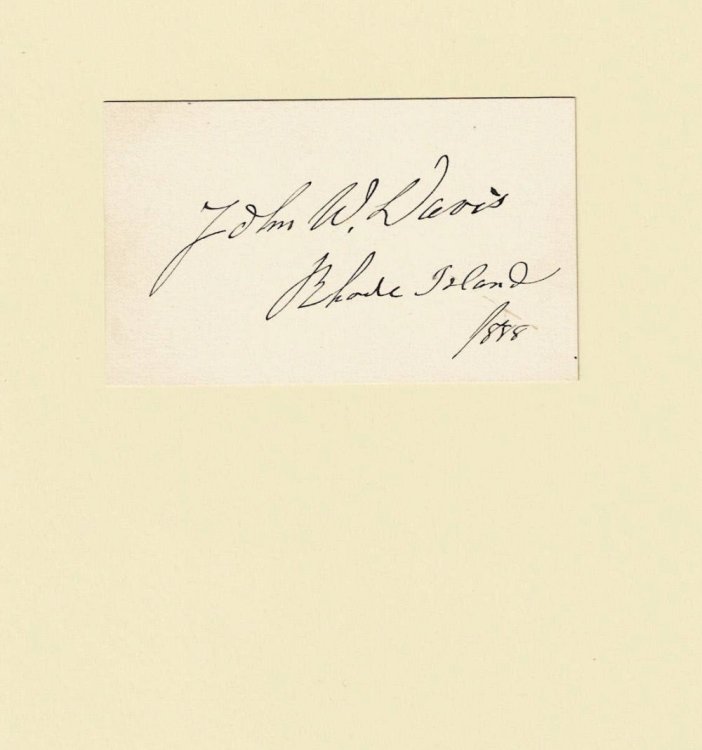 John W. Davis
Rhode Island
1888